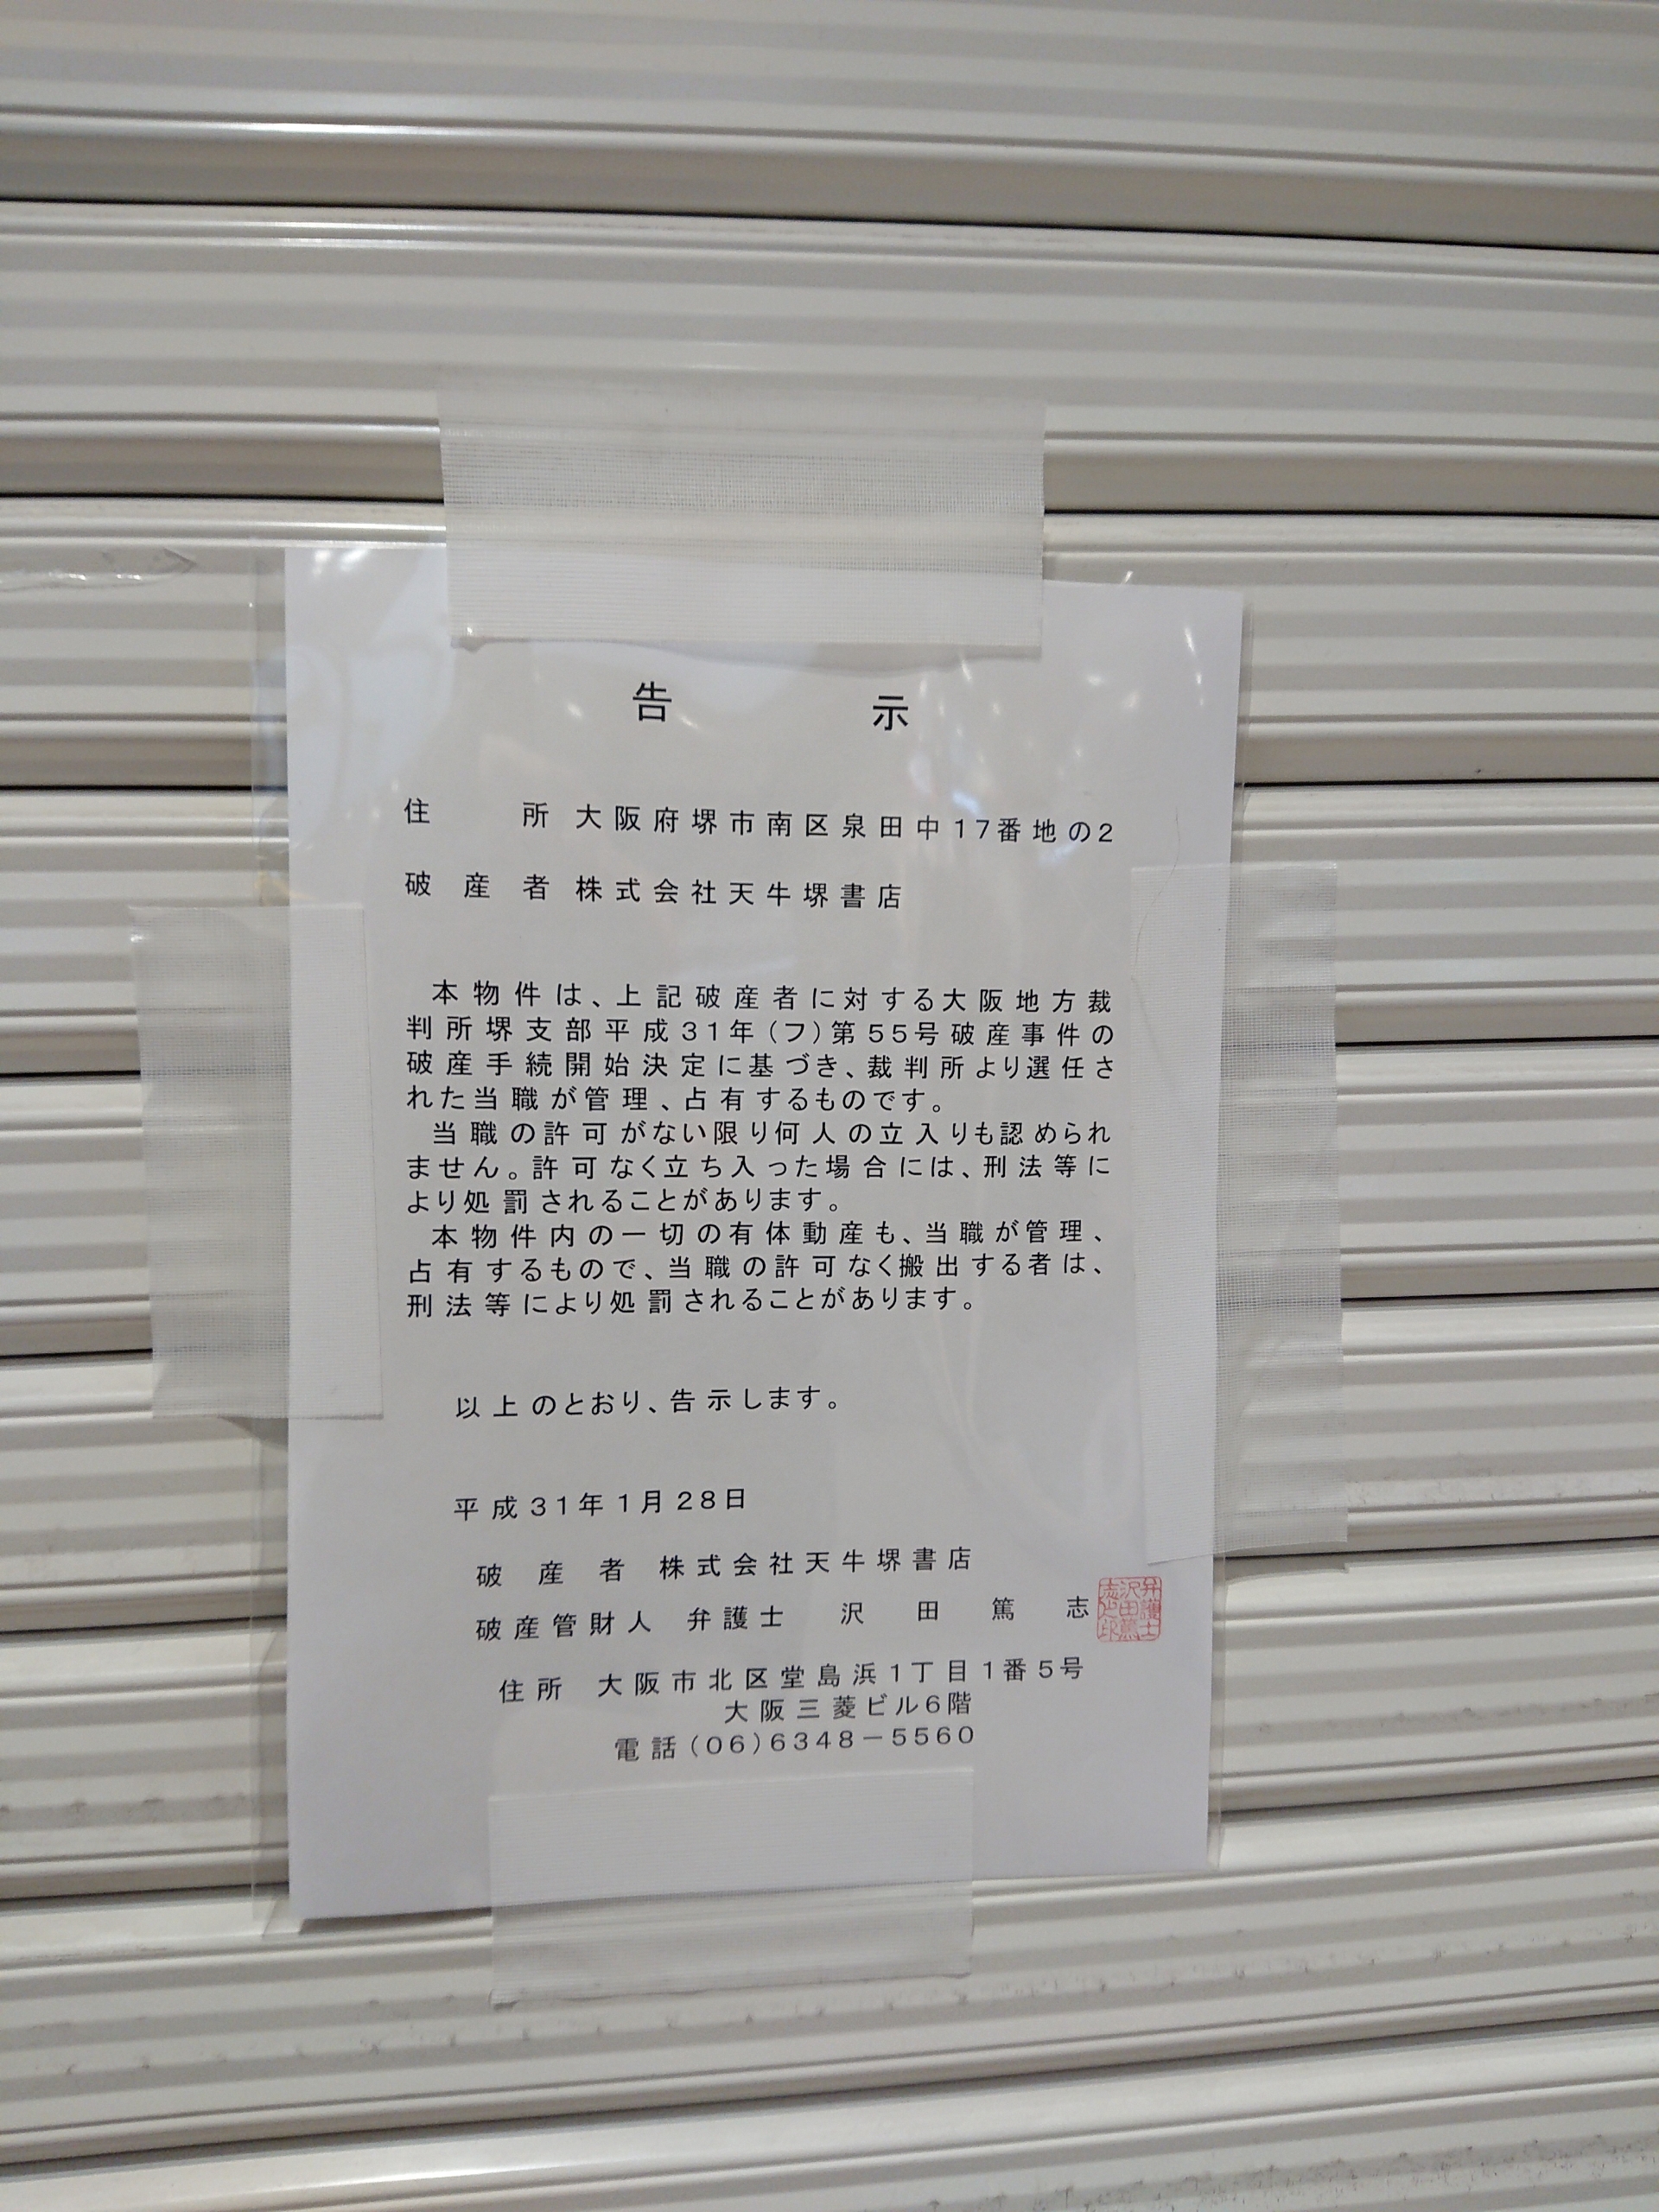 告示
住所 大阪府堺市南区泉田中17番地の2
破産者 株式会社天牛堺書店
本物件は、上記破産者に対する大阪地方裁
判所堺支部平成31年(フ)第55号破産事件の
破産手続開始決定に基づき、裁判所より選任さ
れた当職が管理、占有するものです。
当職の許可がない限り何人の立入りも認められ
ません。許可なく立ち入った場合には、刑法等に
より処罰されることがあります。
本物件内の一切の有体動産も、当職が管理、
占有するもので、当職の許可なく搬出する者は、
刑法等により処罰されることがあります。
以上のとおり、告示します。
平成31年1月28日
破産者 株式会社天牛堺書店
破産管財人 弁護士 沢田篤志
弁護士沢田篤志之印
住所 大阪市北区堂島浜1丁目1番5号
大阪三菱ビル6階
電話(06)6348-5560